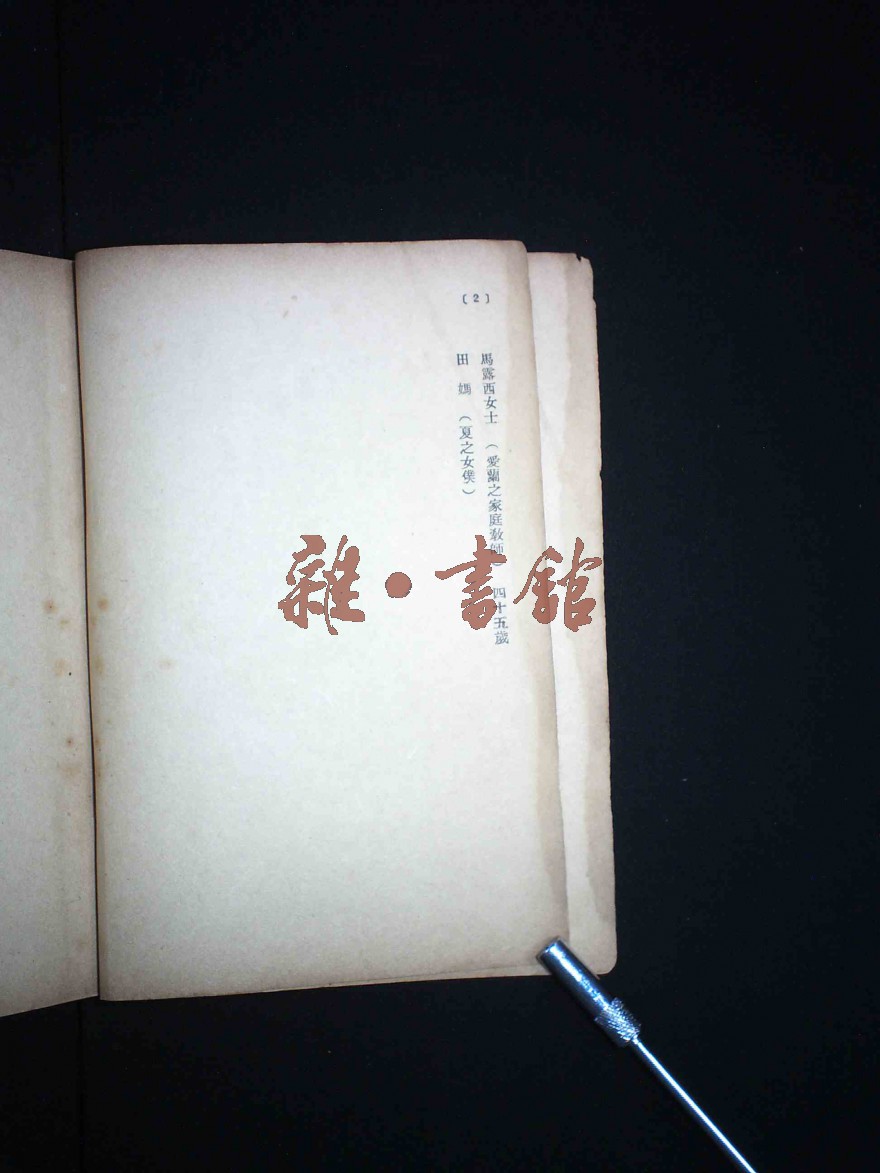 〔2〕
馬露西女士　（愛蘭之家庭敎師）　四十五歲
田　媽　（夏之女僕）
雜·書館